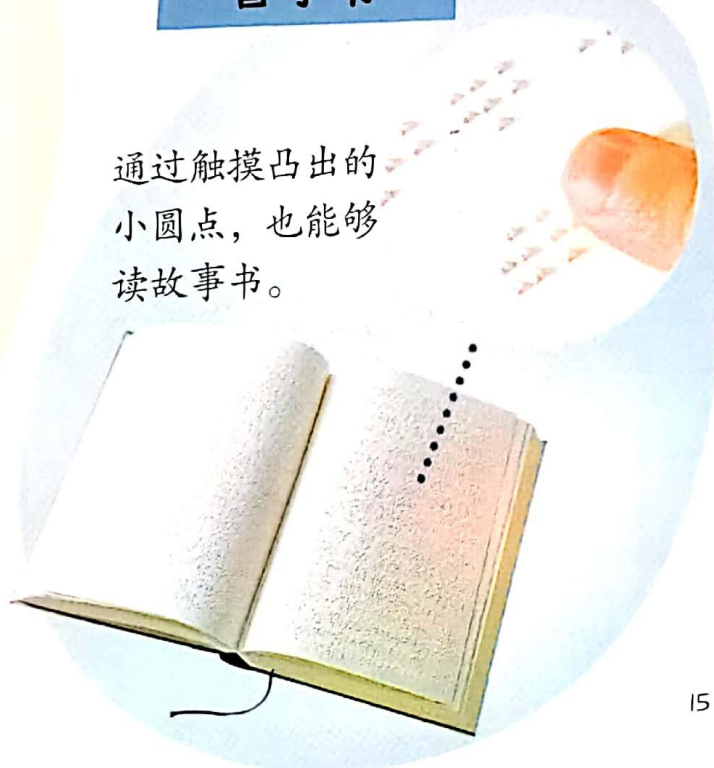 通过触摸凸出的
小圆点，也能够
读故事书。
15